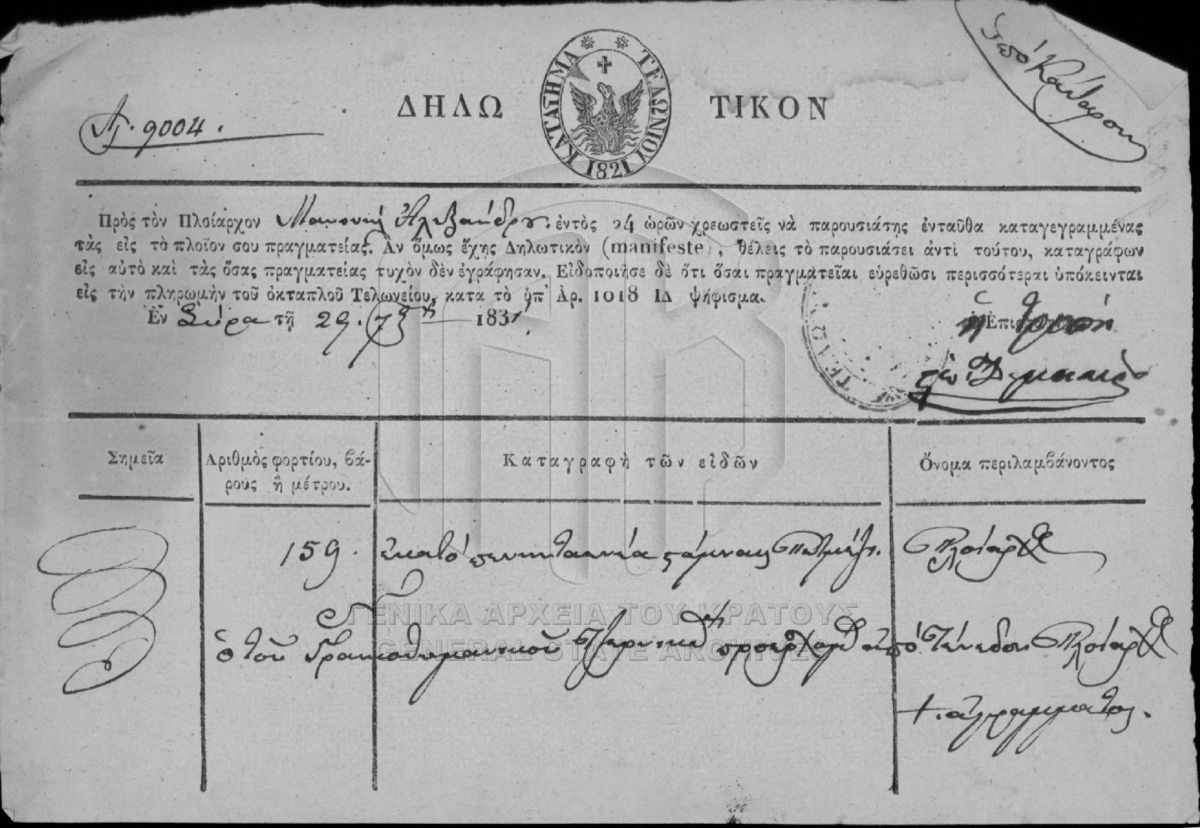 ὑπὸ Κάθαρσιν
ΚΑΤΑΣΤΗΜΑ ΤΕΛΩΝΙΟΥ
1821
ΔΗΛΩ ΤΙΚΟΝ
Ἀρ. 9004.
Πρὸς τὸν Πλοίαρχον Μανουὴλ Ἀλεξάνδρου. ἐντὸς 24 ὡρῶν χρεωστεῖς νὰ παρουσιάσης ἐνταῦθα καταγεγραμμένας
τὰς εἰς τὸ πλοῖον σου πραγματείας. Ἂν ὅμως ἔχης Δηλωτικὸν (manifeste), θέλεις τὸ παρουσιάσει ἀντὶ τούτου, καταγράφων
εἰς αὐτὸ καὶ τὰς ὅσας πραγματείας τυχὸν δὲν ἐγράφησαν. Εἰδοποιήσε δὲ ὅτι ὅσαι πραγματεῖαι εὑρεθῶσι περισσότεραι ὑπόκεινται
εἰς τὴν πληρωμὴν τοῦ ὀκταπλοῦ Τελωνείου, κατὰ τὸ ὑπ᾽ Ἀρ. 1018 ΙΔ ψήφισμα.
Ἐν Σύρα τῇ 29. 7βρίου 1831
ΤΕΛΩ
Σημεῖα
Ἀριθμὸς φορτίου, βά-
ροὺς ἢ μέτρου.
Καταγραφὴ τῶν εἰδῶν
Ὄνομα περιλαμβάνοντος
159. ἑκατὸ πενηνταεννέα στάμναις Πλοίαρχος
ὁ τοῦ Γραικοθωμανικοῦ προερχομ ἀπὸ Τένεδον Πλοίαρχος
+ ἀγράμματος.
ΓΕΝΙΚΑ ΑΡΧΕΙΑ ΤΟΥ ΚΡΑΤΟΥΣ
GENERAL STATE ARCHIVES